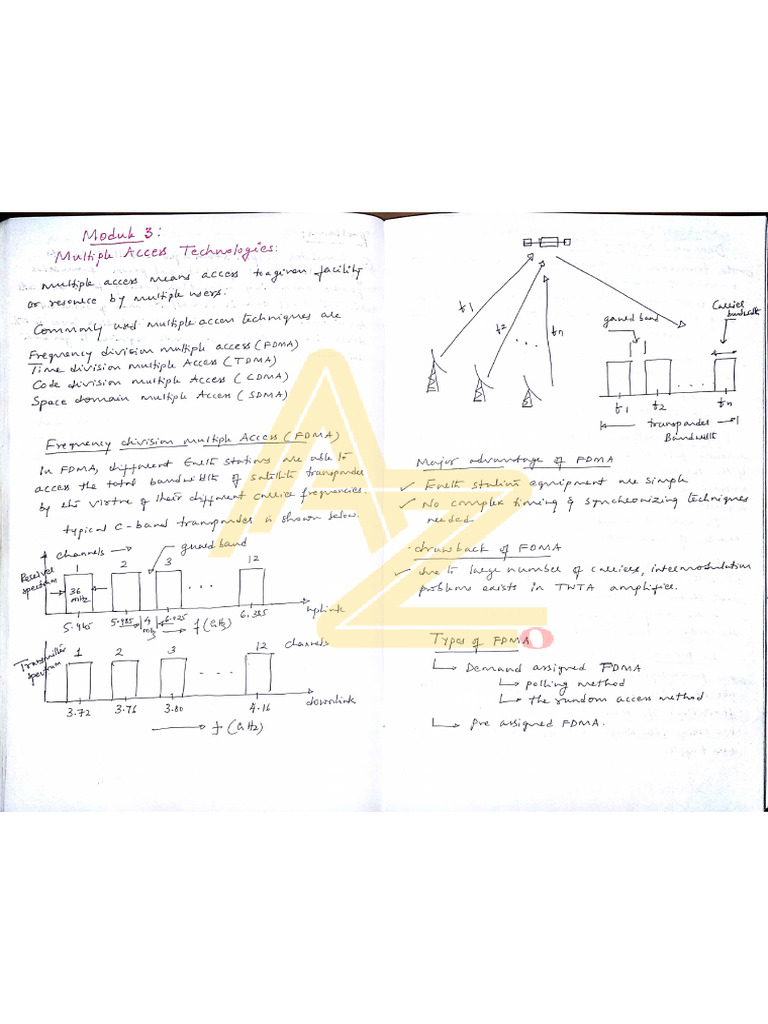 Module 3:
Multiple Access Technologies:
multiple access means access to a given facility
or resource by multiple users.
Commonly used multiple access techniques are
Frequency division multiple access (FDMA)
Time division multiple Access (TDMA)
Code division multiple Access (CDMA)
Space domain multiple Access (SDMA)
Frequency division multiple Access (FDMA)
In FDMA, different Earth stations are able to
access the total bandwidth of satellite transponder
by the virtue of their different carrier frequencies.
typical C-band transponder is shown below.
channels
guard band
Receiver
spectrum
1 2 3 ... 12
36
MHz
5.945 5.985 4 6.025 6.385
MHz
f (GHz)
uplink
Transmitter
spectrum
1 2 3 ... 12
channels
3.72 3.76 3.80 4.16
downlink
f (GHz)
f1 f2 ... fn
guard band
Carrier
bandwidth
f1 f2 ... fn
transponder
Bandwidth
Major advantage of FDMA
✓ Earth station equipment are simple
✓ No complex timing & synchronizing techniques
needed
drawback of FDMA
✓ due to large number of carriers, intermodulation
problems exists in TWTA amplifier.
Types of FDMA
↳ Demand assigned FDMA
↳ polling method
↳ the random access method
↳ Pre assigned FDMA.
AZO